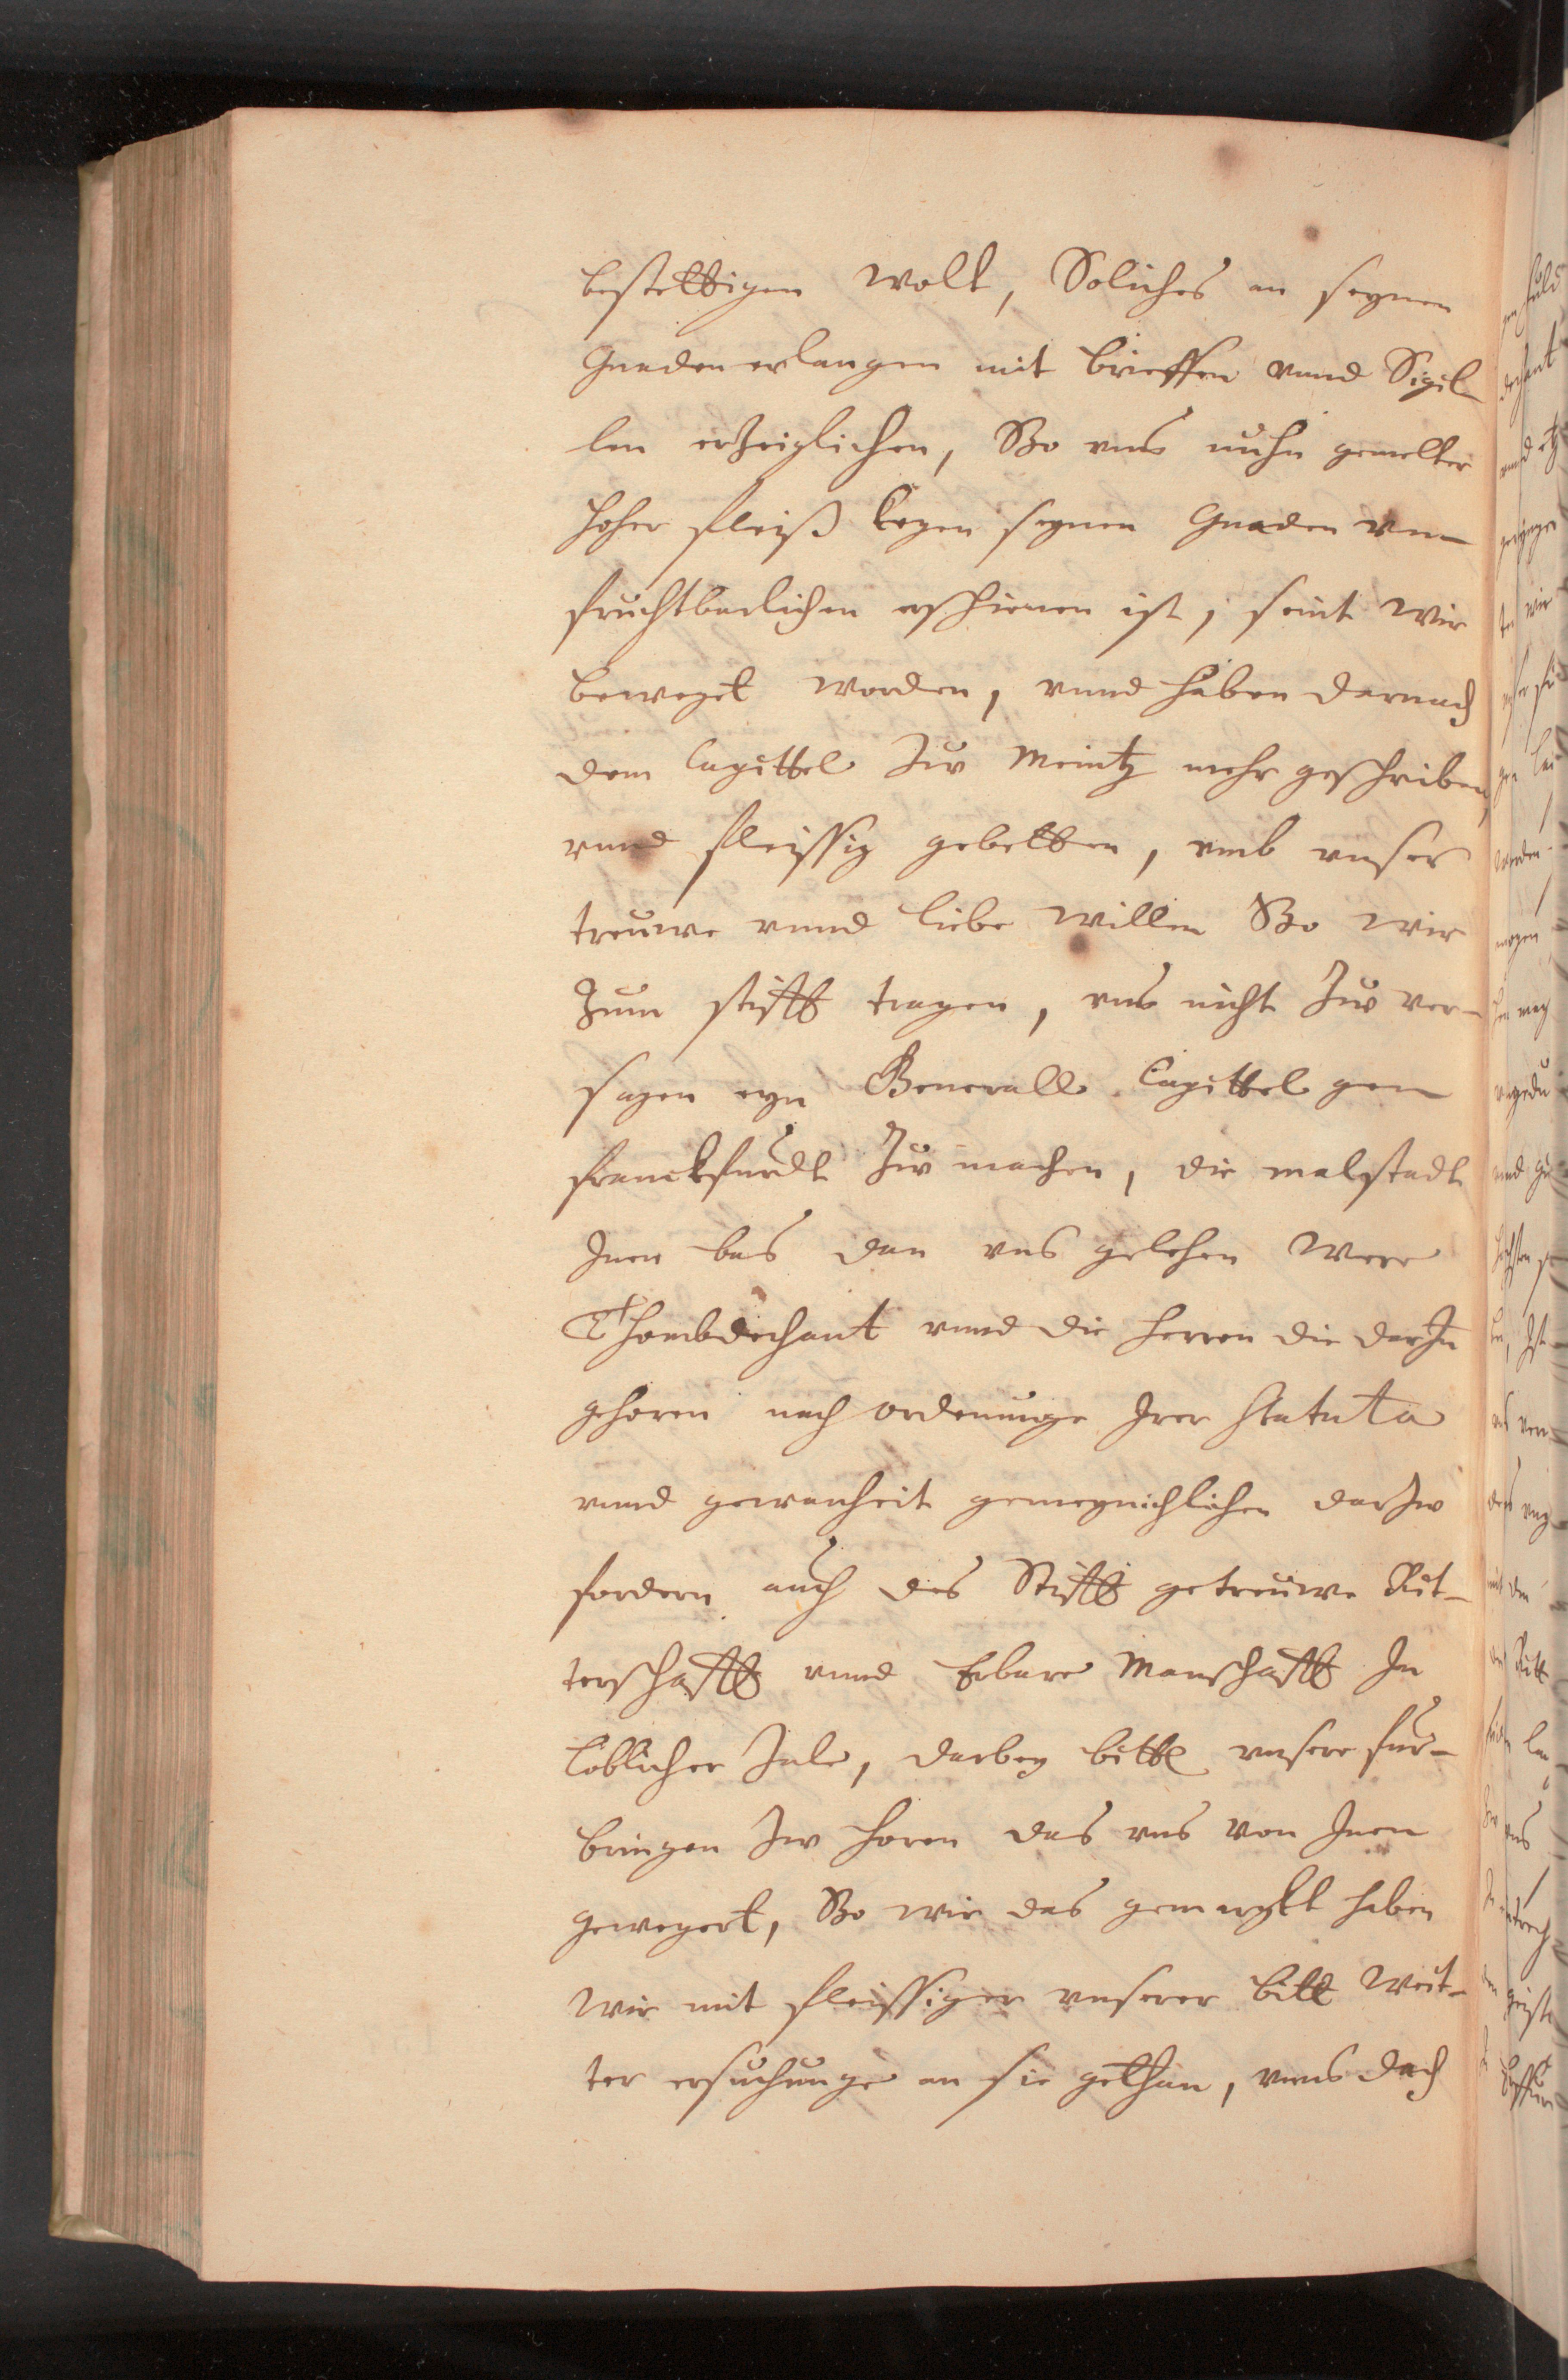 bestettigen wolt, Soliches an seynen
Gnaden erlangen mit brieffen vnnd Sigil-
len erzeiglichen, So vns nuhn gemelter
hoher fleiß kegen seynen Gnaden vn-
fruchtbarlichen erschienen ist, seint wir
beweget worden, vnnd haben darnach
dem Capittel Zur Meintz mehr geschriben,
vnnd fleissig gebetten, vmb vnser
treuwe vnnd liebe willen So wir
Zum stifft tragen, vns nicht Zur ver-
sagen eyn Generall Capittel gen
franckfurdt Zur machen, die malstadt
Inen bas dan vns gelehen were
Thombdechant vnnd die herren die darIn
gehoren nach ordenunge Irer statuta
vnnd gewanheit gemeynichlichen darzur
fordern auch des Stiffts getreuwe Rit-
terschafft vnnd Erbare Manschafft In
loblicher Zale, darbey bitte vnsere fur-
bringen Zur horen das vns von Inen
gewegert, So wir das gemergkt haben
wir mit fleissiger vnserer bitt weit-
ter ersuchunge an sie gethan, vnns doch